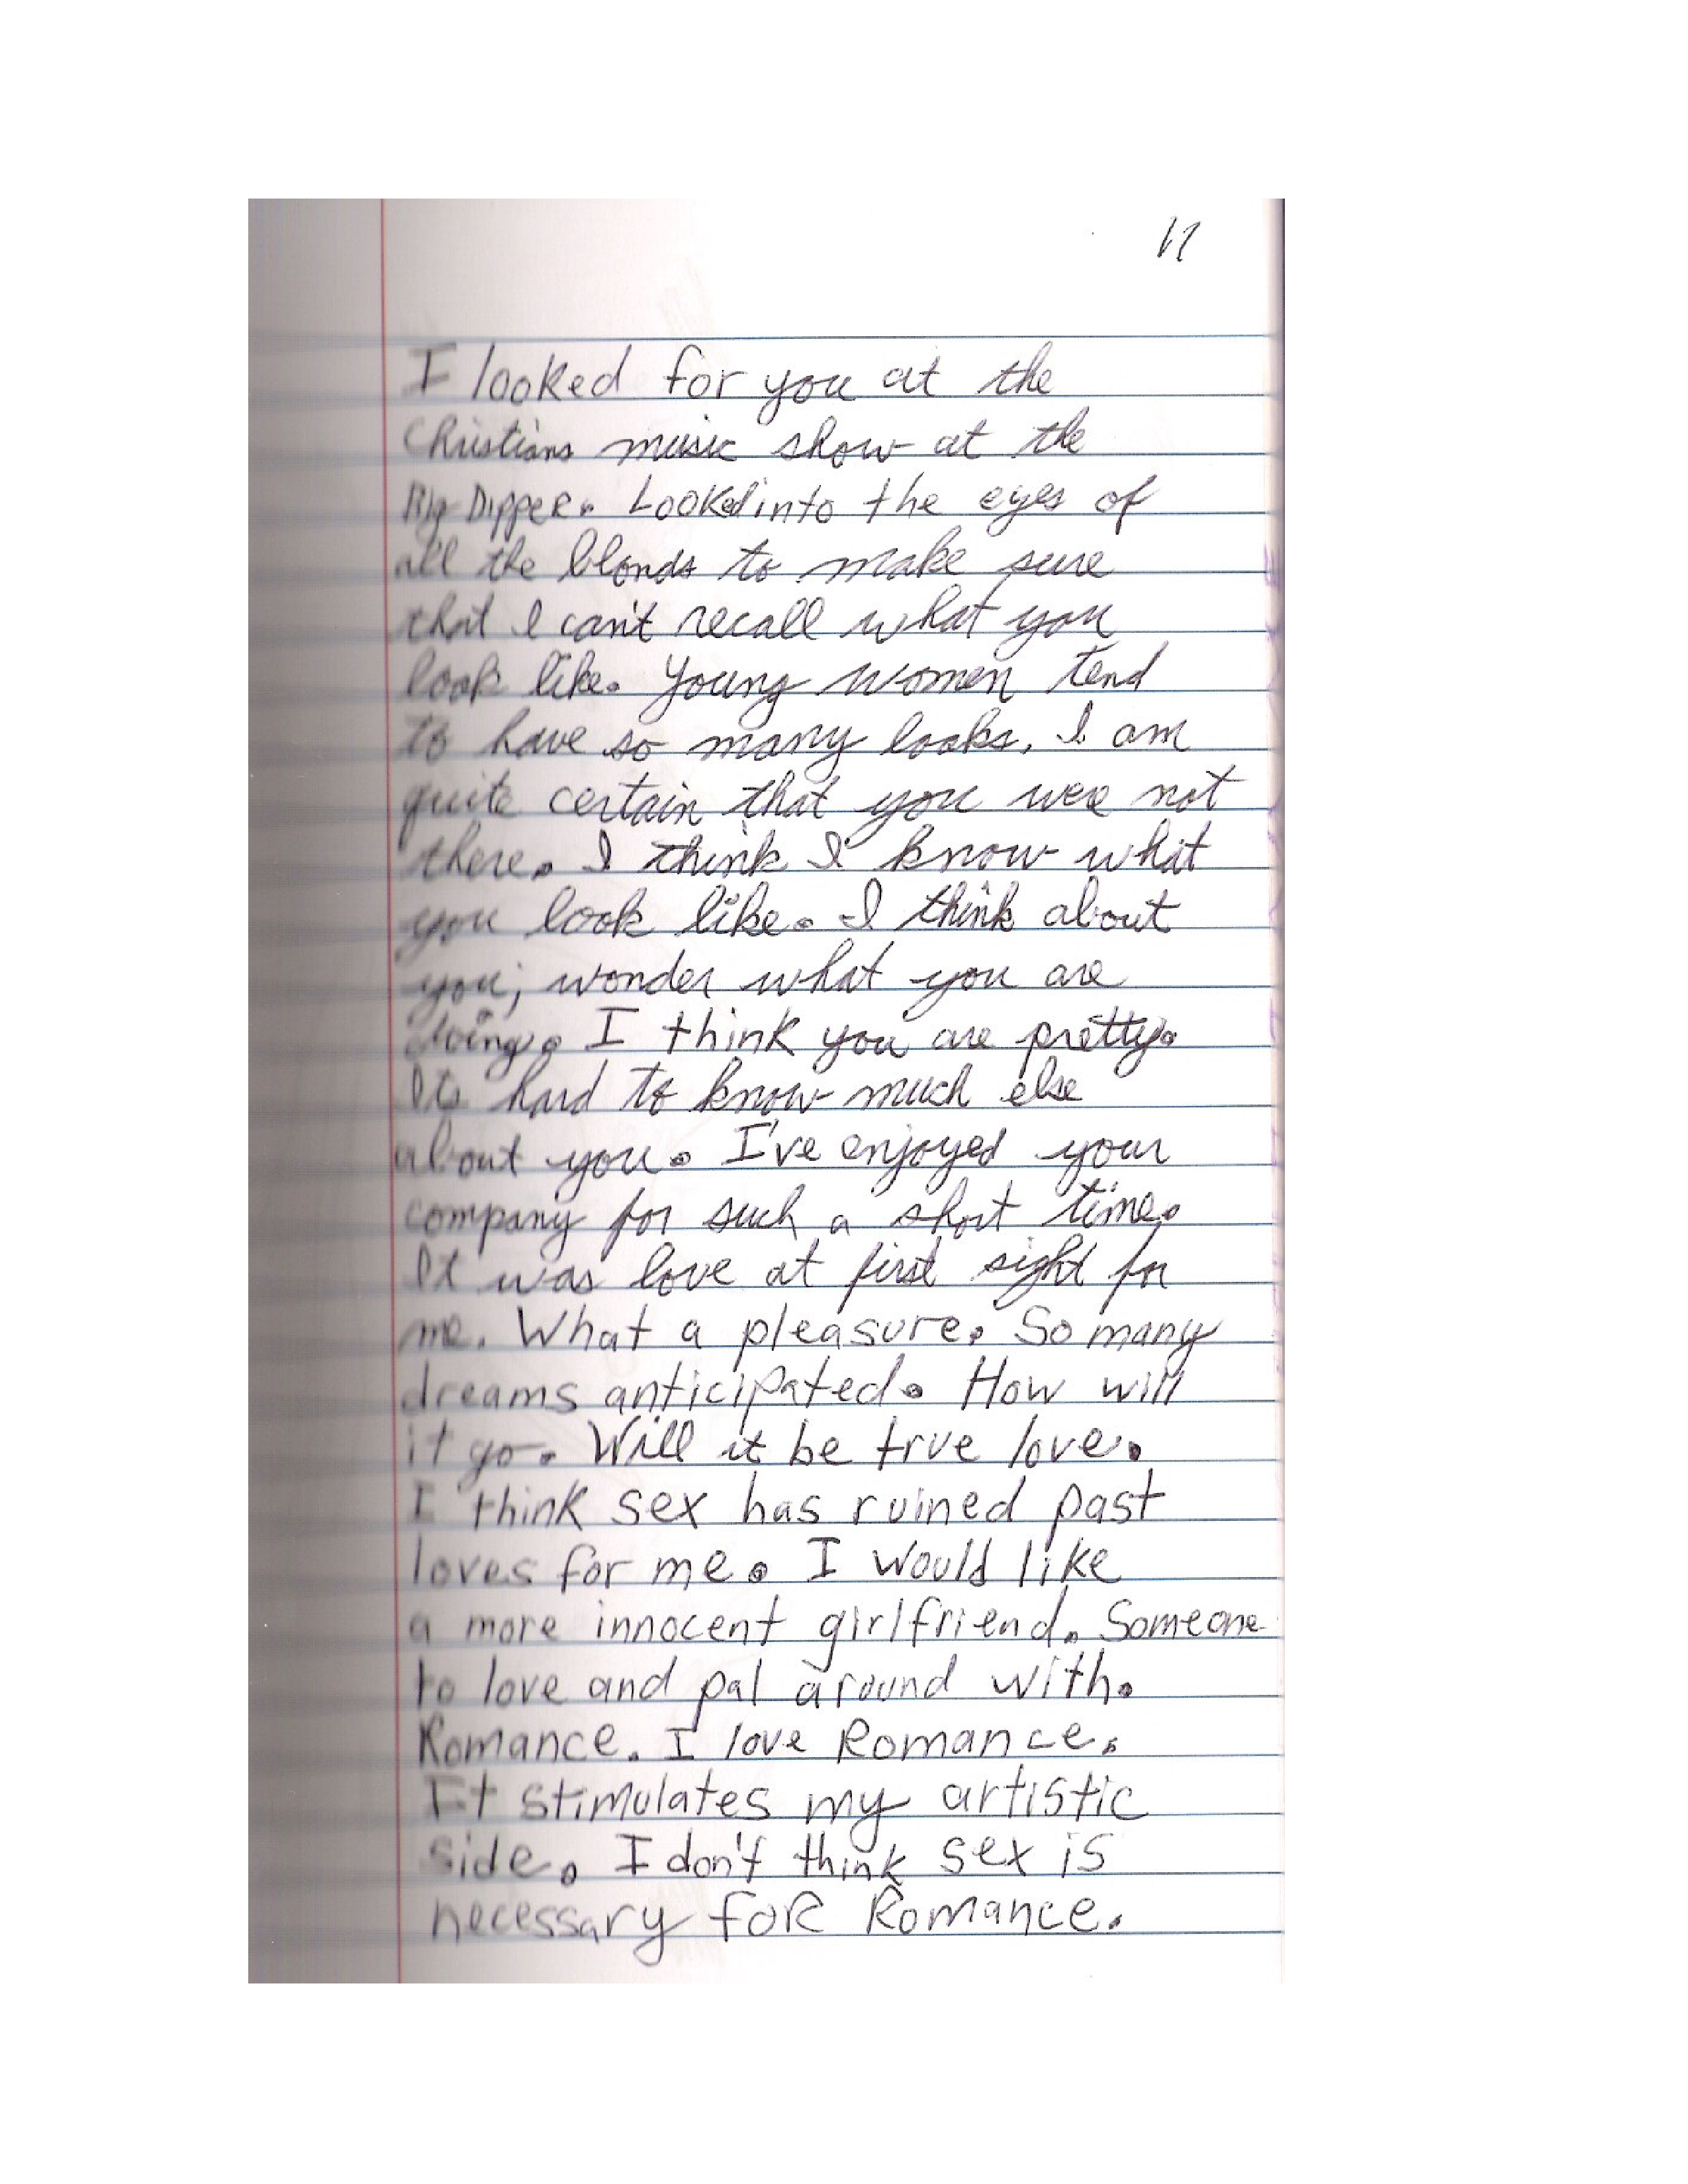 11
I looked for you at the
Christians music show at the
Big Dipper. Looked into the eyes of
all the blonds to make sure
that I can't recall what you
look like. Young women tend
to have so many looks. I am
quite certain that you were not
there. I think I know what
you look like. I think about
you; wonder what you are
doing. I think you are pretty.
Its hard to know much else
about you. I've enjoyed your
company for such a short time.
It was love at first sight for
me. What a pleasure. So many
dreams anticipated. How will
it go. Will it be true love.
I think sex has ruined past
loves for me. I would like
a more innocent girlfriend. Someone
to love and pal around with.
Romance. I love Romance.
It stimulates my artistic
side. I don't think sex is
necessary foR Romance.